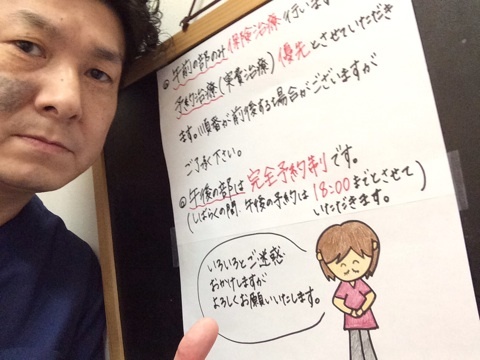 ◎午前の部のみ保険治療行います
予約治療(実費治療)優先とさせていただき
ます。順番が前後する場合がございますが
ご了承下さい。
◎午後の部は完全予約制です。
(しばらくの間、午後の予約は18:00までとさせて
いただきます。)
いろいろとご迷惑
おかけしますが
よろしくお願いいたします。